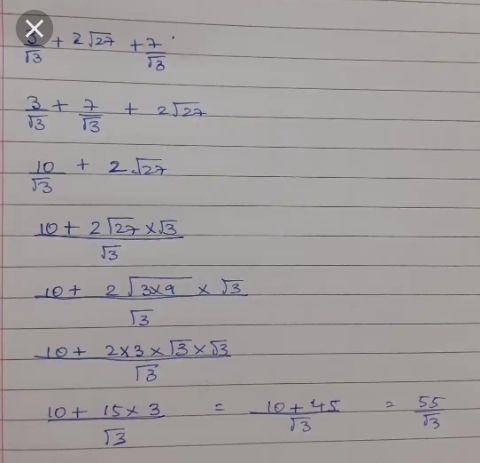 3/√3 + 2√27 + 7/√3
3/√3 + 7/√3 + 2√27
10/√3 + 2√27
10 + 2√27 × √3 / √3
10 + 2√3×9 × √3 / √3
10 + 2×3×√3×√3 / √3
10 + 15×3 / √3 = 10 + 45 / √3 = 55/√3